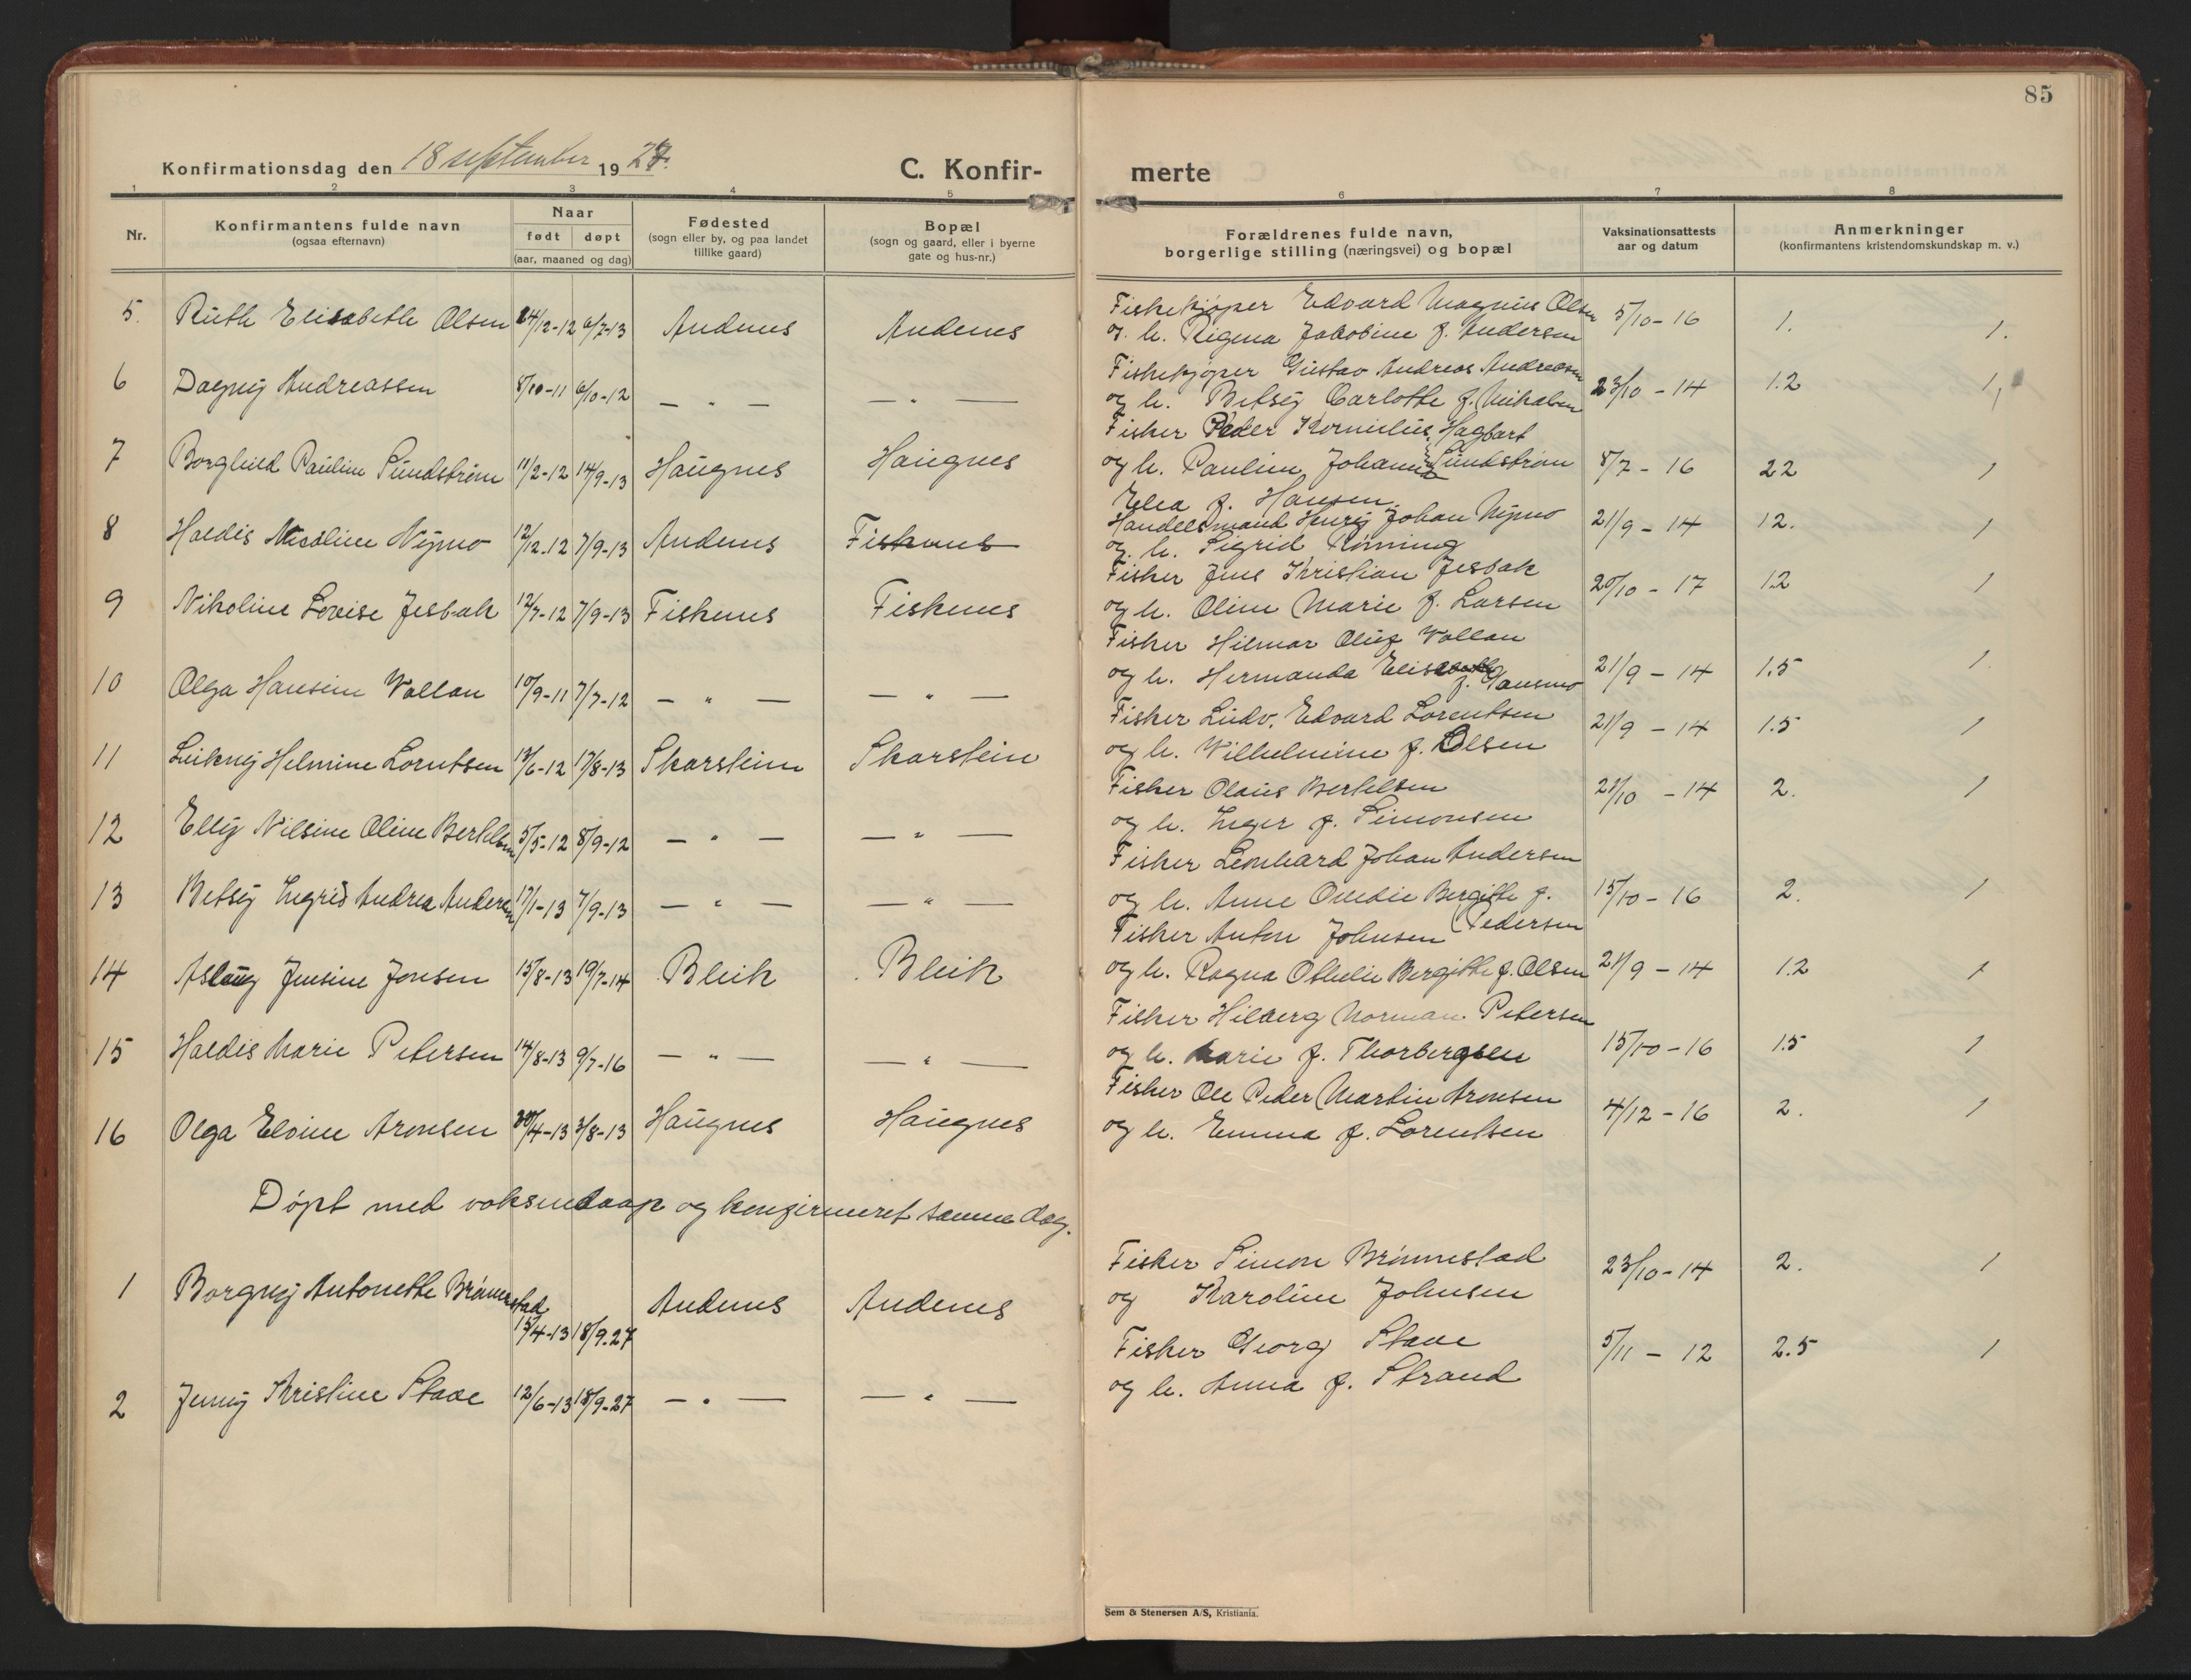 85
Konfirmationsdag den 18 september 1927. C. Konfirmerte
1 2 3 4 5 6 7 8
Nr. Konfirmantens fulde navn (ogsaa efternavn) Naar født døpt (aar, maaned og dag) Fødested (sogn eller by, og paa landet tillike gaard) Bopæl (sogn og gaard, eller i byerne gate og hus-nr.) Forældrenes fulde navn, borgerlige stilling (næringsvei) og bopæl Vaksinationsattests aar og datum Anmerkninger (konfirmantens kristendomskundskap m. v.)
5. Ruth Elisabeth Olsen 24/12-12 6/7-13 Andenes Andenes Fiskekjøper Edvard Magnus Olsen 5/10-16 1. 1.
og h. Regina Jakobine f. Andersen
6 Dagny Andreassen 8/10-11 6/10-12 — " — — " — Fiskekjøper Gustav Andreas Andreasen 23/10-14 1.2 1,
og h. Betsy Carlotte f. Mikalsen
7 Borghild Pauline Sundstrøm 11/2-12 14/9-13 Haugnes Haugnes Fisker Peder Kornelius Hagbart Sundstrøm 8/7-16 22 1
og h. Pauline Johanna
Elea f. Hansen
8 Haldis Nicoline Nymo 12/12-12 7/9-13 Andenes Fiskenes Handelsmand Henry Johan Nymo 21/9-14 12. 1
og h. Sigrid Rønning
9 Nikoline Lovise Jesbak 12/7-12 7/9-13 Fiskenes Fiskenes Fisker Jens Kristian Jesbak 20/10-17 12 1
og h. Oline Marie f. Larsen
10 Olga Hansine Vollan 10/9-11 7/7-12 — " — — " — Fisker Hilmar Oluf Vollan 21/9-14 1.5 1
og h. Hermanda f. Gausmo
11 Leikny Helmine Lorntsen 13/6-12 17/8-13 Skarstein Skarstein Fisker Ludv. Edvard Lorentsen 21/9-14 1.5 1
og h. Wilhelmine f. Olsen
12 Elly Nilsine Oline Bertelsen 5/5-12 8/9-12 — " — — " — Fisker Olaus Bertelsen 21/10-14 2. 1
og h. Inger f. Simonsen
13 Betsy Ingrid Andrea Andersen 17/1-13 7/9-13 — " — — " — Fisker Leonhard Johan Andersen 15/10-16 2. 1
og h. Anne Ovedie Bergitte f. Pedersen
14 Aslaug Jensine Jonsen 15/8-13 19/7-14 Bleik Bleik Fisker Anton Johnsen 21/9-14 1.2 1
og h. Ragna Othelie Bergitte f. Olsen
15 Haldis Marie Petersen 14/8-13 9/7-16 — " — — " — Fisker Hilberg Norman Petersen 15/10-16 1.5 1
og h. Marie f. Thorbergsen
16 Olga Elvine Aronsen 30/4-13 3/8-13 Haugnes Haugnes Fisker Ole Peder Martin Aronsen 4/12-16 2. 1
og h. Emma f. Lorentsen
Døpt med voksendaap og konfirmeret samme dag.
1 Borgny Antonette Brønnestad 15/4-13 18/9.27 Andenes Andenes Fisker Simon Brønnestad 23/10-14 2. 1
og Karoline Johnsen
2 Jenny Kristine Stave 12/6-13 18/9-27 — " — — " — Fisker Georg Stave 5/11-12 2.5 1
og h. Anna f. Strand
Sem & Stenersen A/S, Kristiania.